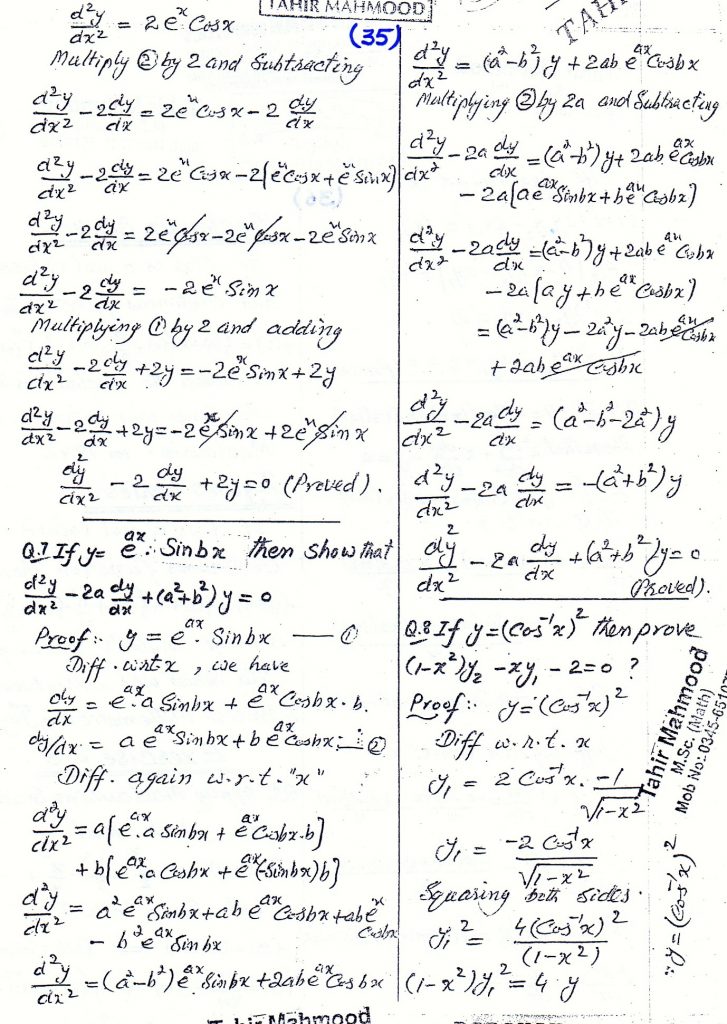 TAHIR MAHMOOD
TAHIR
(35)
d²y/dx² = 2eˣ Cosx
Multiply ② by 2 and Subtracting
d²y/dx² - 2dy/dx = 2eˣ Cosx - 2 dy/dx
d²y/dx² - 2dy/dx = 2eˣ Cosx - 2[eˣCosx + eˣ Sinx]
d²y/dx² - 2dy/dx = 2eˣ Cosx - 2eˣ Cosx - 2eˣ Sinx
d²y/dx² - 2dy/dx = -2eˣ Sinx
Multiplying ① by 2 and adding
d²y/dx² - 2dy/dx + 2y = -2eˣ Sinx + 2y
d²y/dx² - 2dy/dx + 2y = -2eˣ Sinx + 2eˣ Sinx
d²y/dx² - 2 dy/dx + 2y = 0 (Proved).
Q.7 If y = eᵃˣ. Sinbx then show that
d²y/dx² - 2a dy/dx + (a²+b²) y = 0
Proof:- y = eᵃˣ. Sinbx — ①
Diff. w.r.t x, we have
dy/dx = eᵃˣ.a Sinbx + eᵃˣ Cosbx.b.
dy/dx = a eᵃˣ Sinbx + b eᵃˣ Cosbx: — ②
Diff. again w.r.t. "x"
d²y/dx² = a[eᵃˣ.a Sinbx + eᵃˣ Cosbx.b]
+ b[eᵃˣ.a Cosbx + eᵃˣ(-Sinbx)b]
d²y/dx² = a² eᵃˣ Sinbx + ab eᵃˣ Cosbx + ab eˣ Cosbx
- b² eᵃˣ Sinbx
d²y/dx² = (a²-b²) eᵃˣ Sinbx + 2ab eᵃˣ Cosbx
d²y/dx² = (a²-b²) y + 2ab eᵃˣ Cosbx
Multiplying ② by 2a and Subtracting
d²y/dx² - 2a dy/dx = (a²-b²) y + 2ab eᵃˣ Cosbx
- 2a[a eᵃˣ Sinbx + b eᵃˣ Cosbx]
d²y/dx² - 2a dy/dx = (a²-b²) y + 2ab eᵃˣ Cosbx
- 2a[a y + b eᵃˣ Cosbx]
= (a²-b²) y - 2a²y - 2ab eᵃˣ Cosbx
+ 2ab eᵃˣ Cosbx
d²y/dx² - 2a dy/dx = (a²-b²-2a²) y
d²y/dx² - 2a dy/dx = -(a²+b²) y
d²y/dx² - 2a dy/dx + (a²+b²) y = 0
(Proved).
Q.8 If y = (Cos⁻¹x)² then prove
(1-x²)y₂ - xy₁ - 2 = 0 ?
Proof:- y = (Cos⁻¹x)²
Diff w.r.t. x
y₁ = 2 Cos⁻¹x. -1/√(1-x²)
y₁ = -2 Cos⁻¹x/√(1-x²)
Squaring both sides.
y₁² = 4(Cos⁻¹x)²/(1-x²)
(1-x²)y₁² = 4 y
∵ y = (Cos⁻¹x)²
Tahir Mahmood
M.Sc. (Math)
Mob No: 0345-65107
Tahir Mahmood